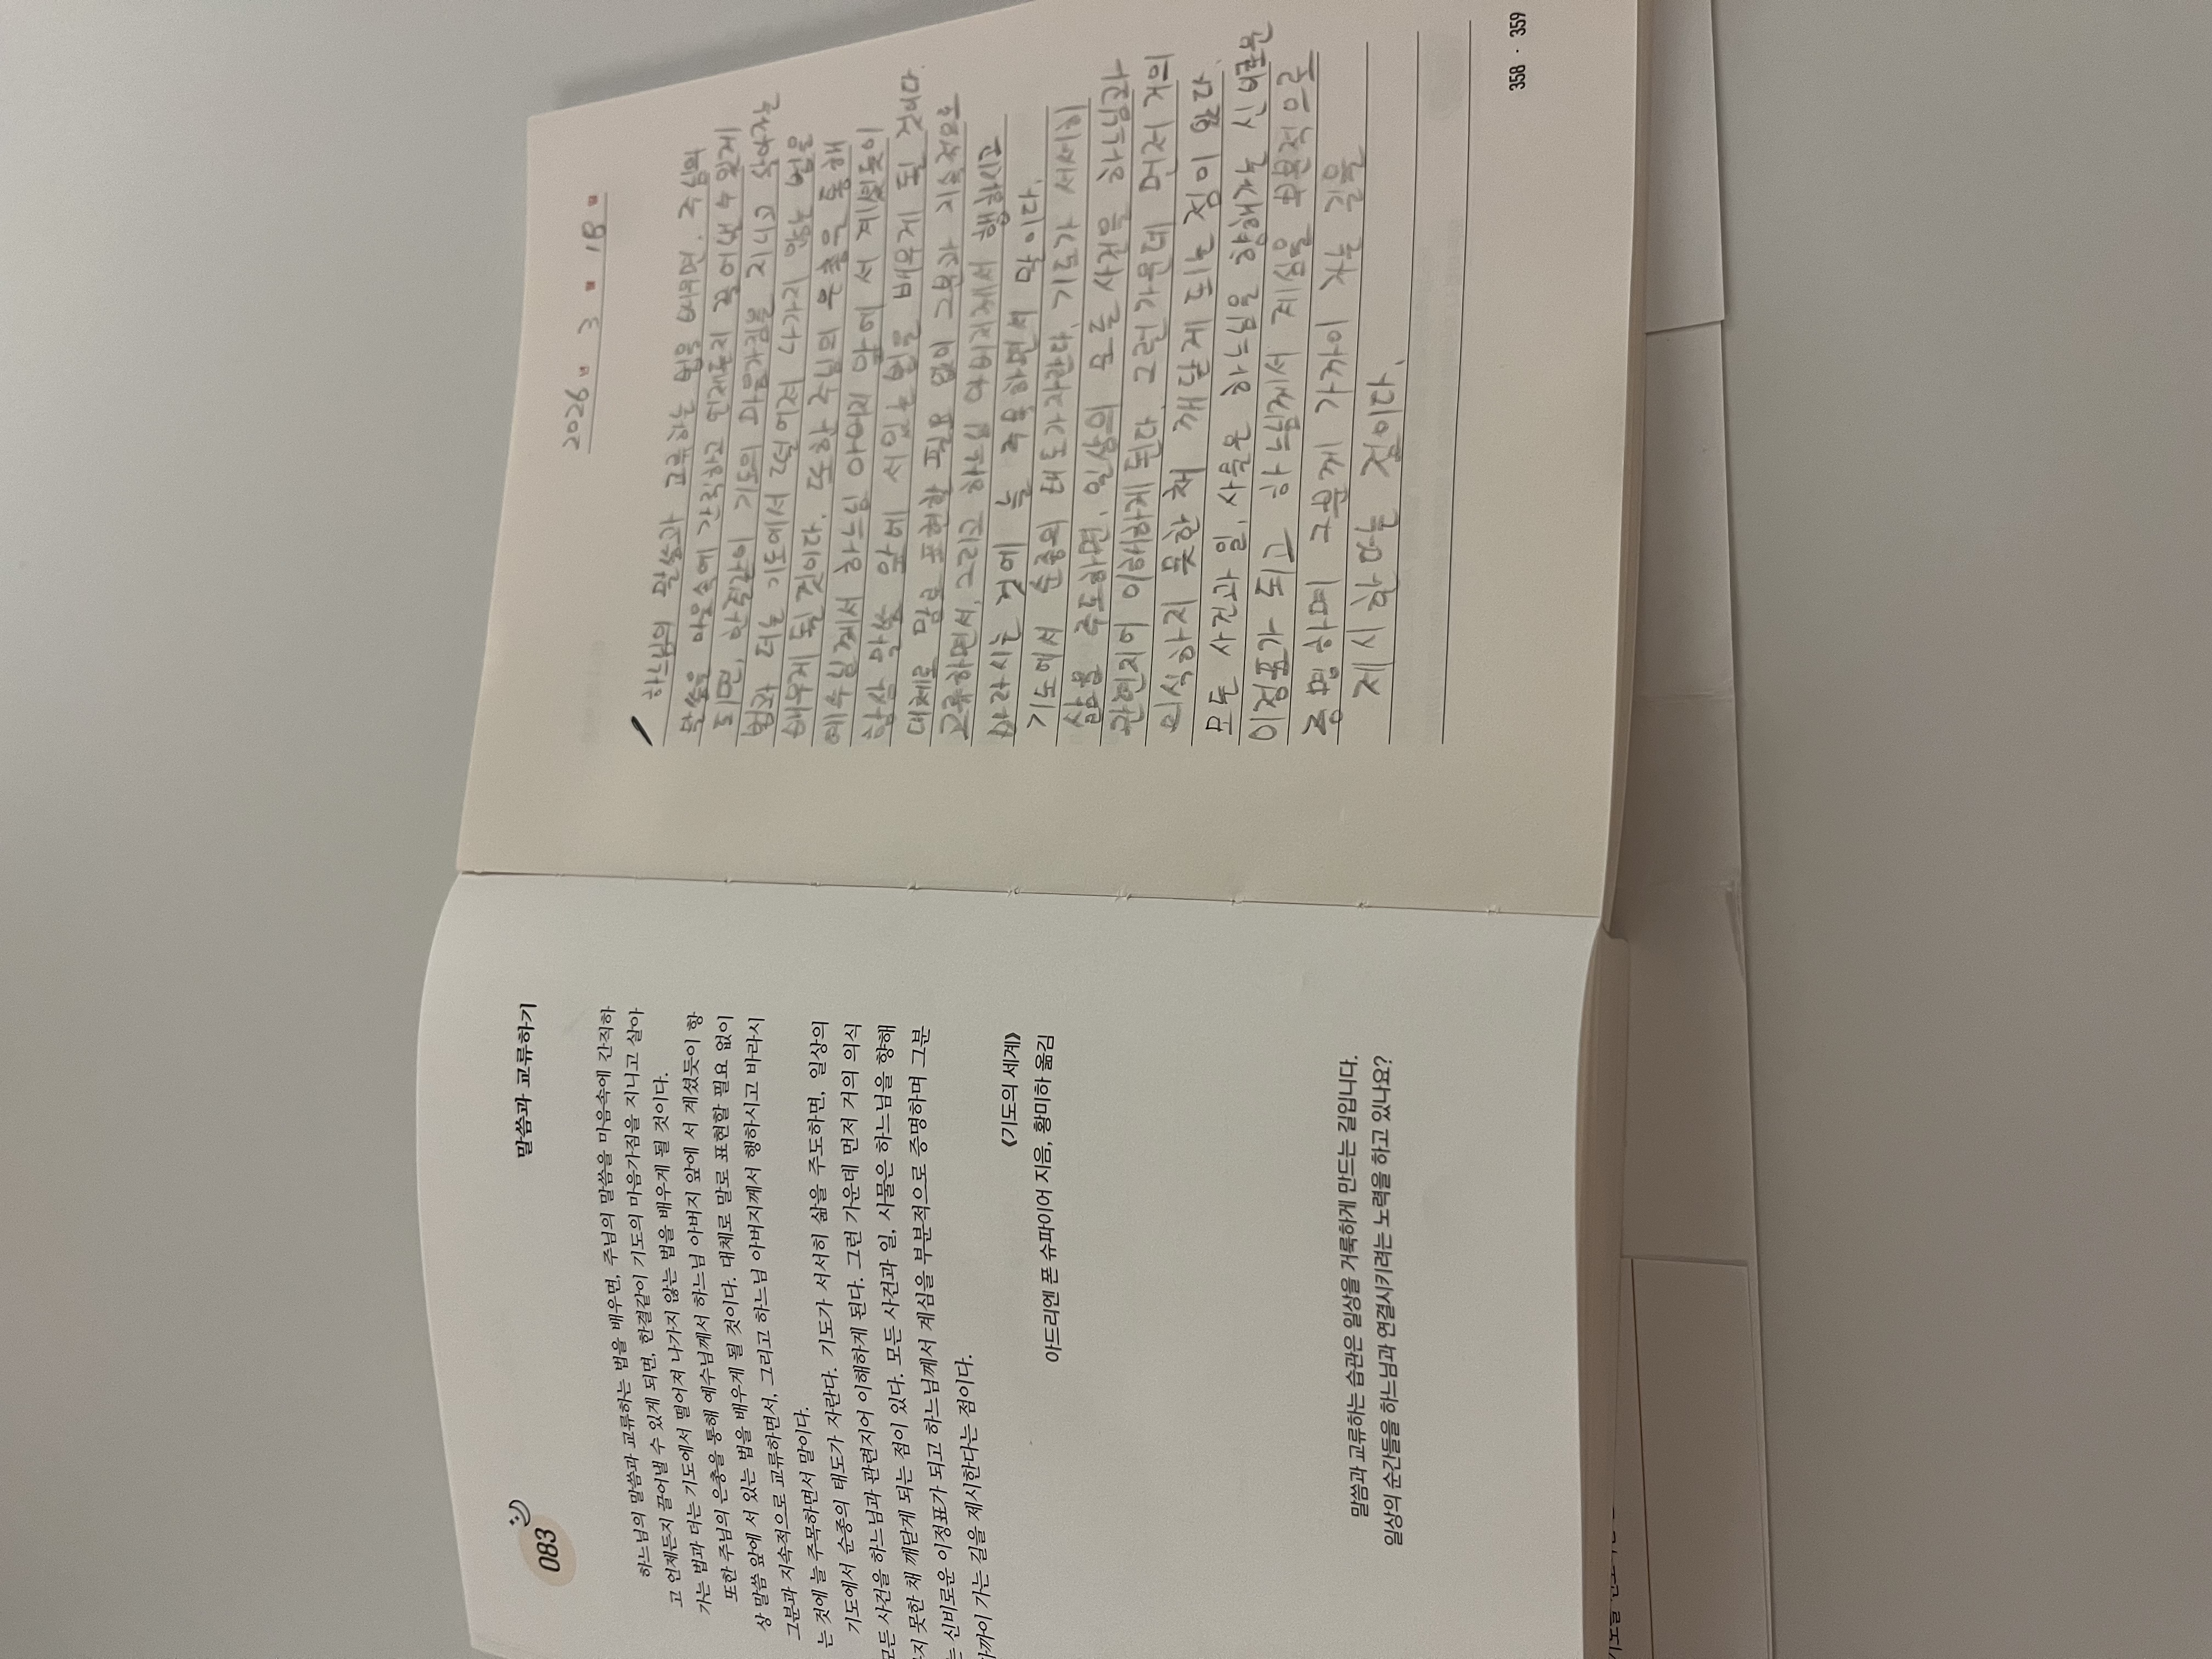 083
말씀과 교류하기
하느님의 말씀과 교류하는 법을 배우면, 주님의 말씀을 마음속에 간직하
고 언제든지 끌어낼 수 있게 되면, 한결같이 기도의 마음가짐을 지니고 살아
가는 법과 더는 기도에서 떨어져 나가지 않는 법을 배우게 될 것이다.
또한 주님의 은총을 통해 예수님께서 하느님 아버지 앞에 서 계셨듯이 항
상 말씀 앞에 서 있는 법을 배우게 될 것이다. 대체로 말로 표현할 필요 없이
그분과 지속적으로 교류하면서, 그리고 하느님 아버지께서 행하시고 바라시
는 것에 늘 주목하면서 말이다.
기도에서 순종의 태도가 자란다. 기도가 서서히 삶을 주도하면, 일상의
모든 사건을 하느님과 관련지어 이해하게 된다. 그런 가운데 먼저 거의 의식
지 못한 채 깨닫게 되는 점이 있다. 모든 사건과 일, 사물은 하느님을 향해
는 신비로운 이정표가 되고 하느님께서 계심을 부분적으로 증명하며 그분
가까이 가는 길을 제시한다는 점이다.
《기도의 세계》
아드리엔 폰 슈파이어 지음, 황미하 옮김
말씀과 교류하는 습관은 일상을 거룩하게 만드는 길입니다.
일상의 순간들을 하느님과 연결시키려는 노력을 하고 있나요?
2026 3 18
하느님의 말씀과 교류하는 법을 배우면, 주님의
말씀을 마음속에 간직하고 언제든지 끌어낼 수 있게
되면, 한결같이 기도의 마음가짐을 지니고 살아가는
법과 더는 기도에서 떨어져 나가지 않는 법을
배우게 될 것이다. 또한 주님의 은총을 통해
예수님께서 하느님 아버지 앞에 서 계셨듯이
항상 말씀 앞에 서있는 법을 배우게 될 것이다
대체로 말로 표현할 필요 없이 그분과 지속적으로
교류하면서, 그리고 하느님 아버지께서 행하시고
바라시는 것에 늘 주목하면서 말이다.
기도에서 순종의 태도가 자란다. 기도가 서서히
삶을 주도하면, 일상의 모든 사건을 하느님과
관련지어 이해하게 된다. 그런 가운데 먼저 거의
의식하지 못한 채 깨닫게 되는 점이 있다.
모든 사건과 일, 사물은 하느님을 향해가는 신비로운
이정표가 되고 하느님께서 계심을 부분적으로
증명하며 그분께 가까이 가는 길을
제시한다는 것이다.
358 · 359